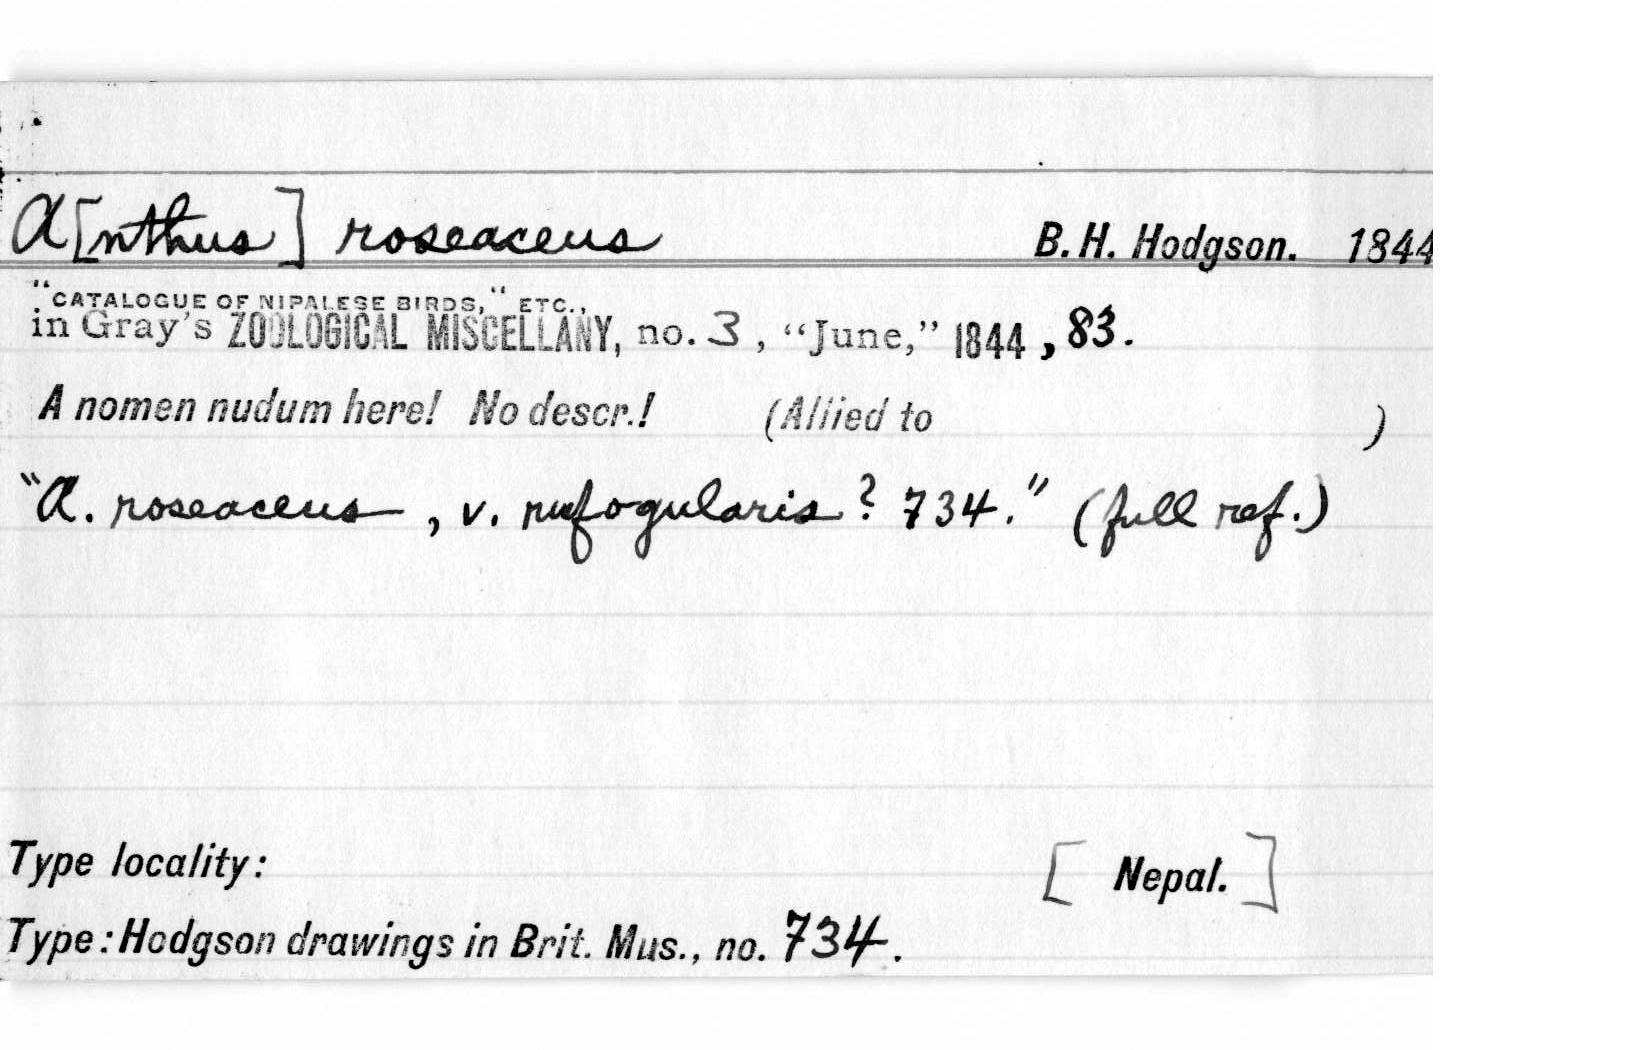 A[nthus] roseaceus B. H. Hodgson. 1844
"CATALOGUE OF NIPALESE BIRDS," ETC.,
in Gray's ZOOLOGICAL MISCELLANY, no. 3, "June," 1844, 83.
A nomen nudum here! No descr.! (Allied to )
"A. roseaceus, v. rufogularis? 734." (full ref.)
Type locality: [Nepal.]
Type: Hodgson drawings in Brit. Mus., no. 734.